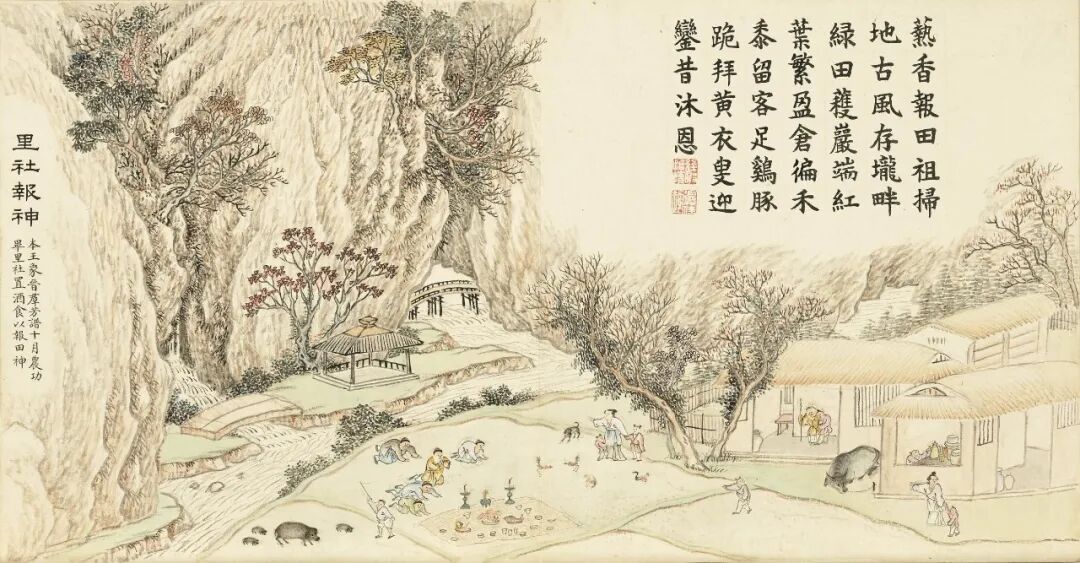 爇香報田祖掃
地古風存壠畔
緑田蠖巖端紅
葉繁盈倉徧禾
黍留客足鷄豚
跪拜黄衣叟迎
鑾昔沐恩
里社報神
本王象晉羣芳譜十月農功
畢里社置酒食以報田神